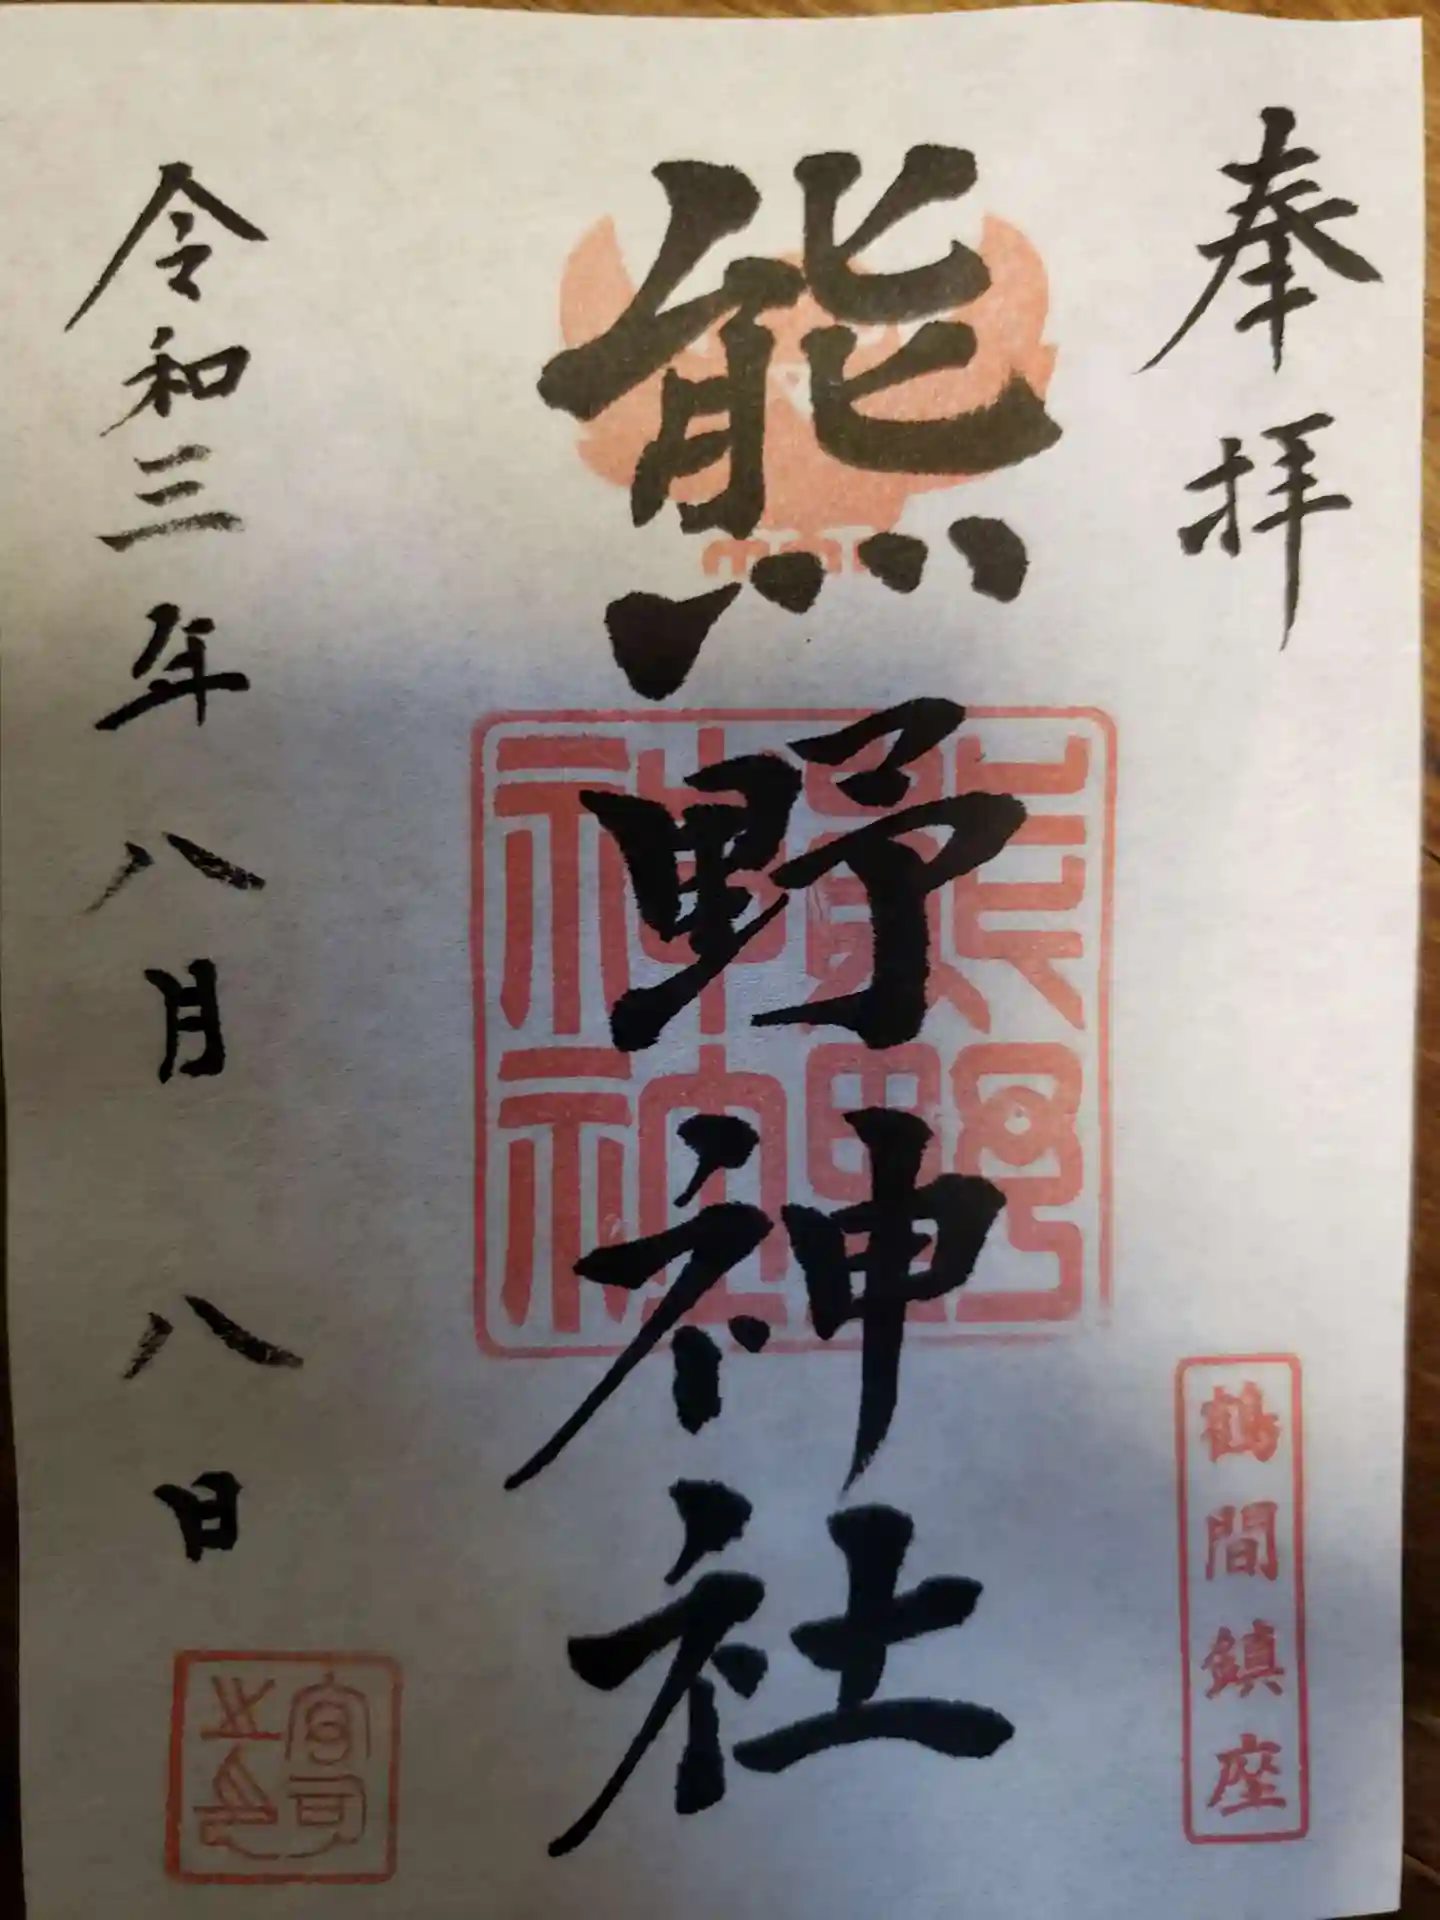 奉拝
鶴間鎮座
熊野神社
熊野
神社
令和三年八月八日
宮司
之印